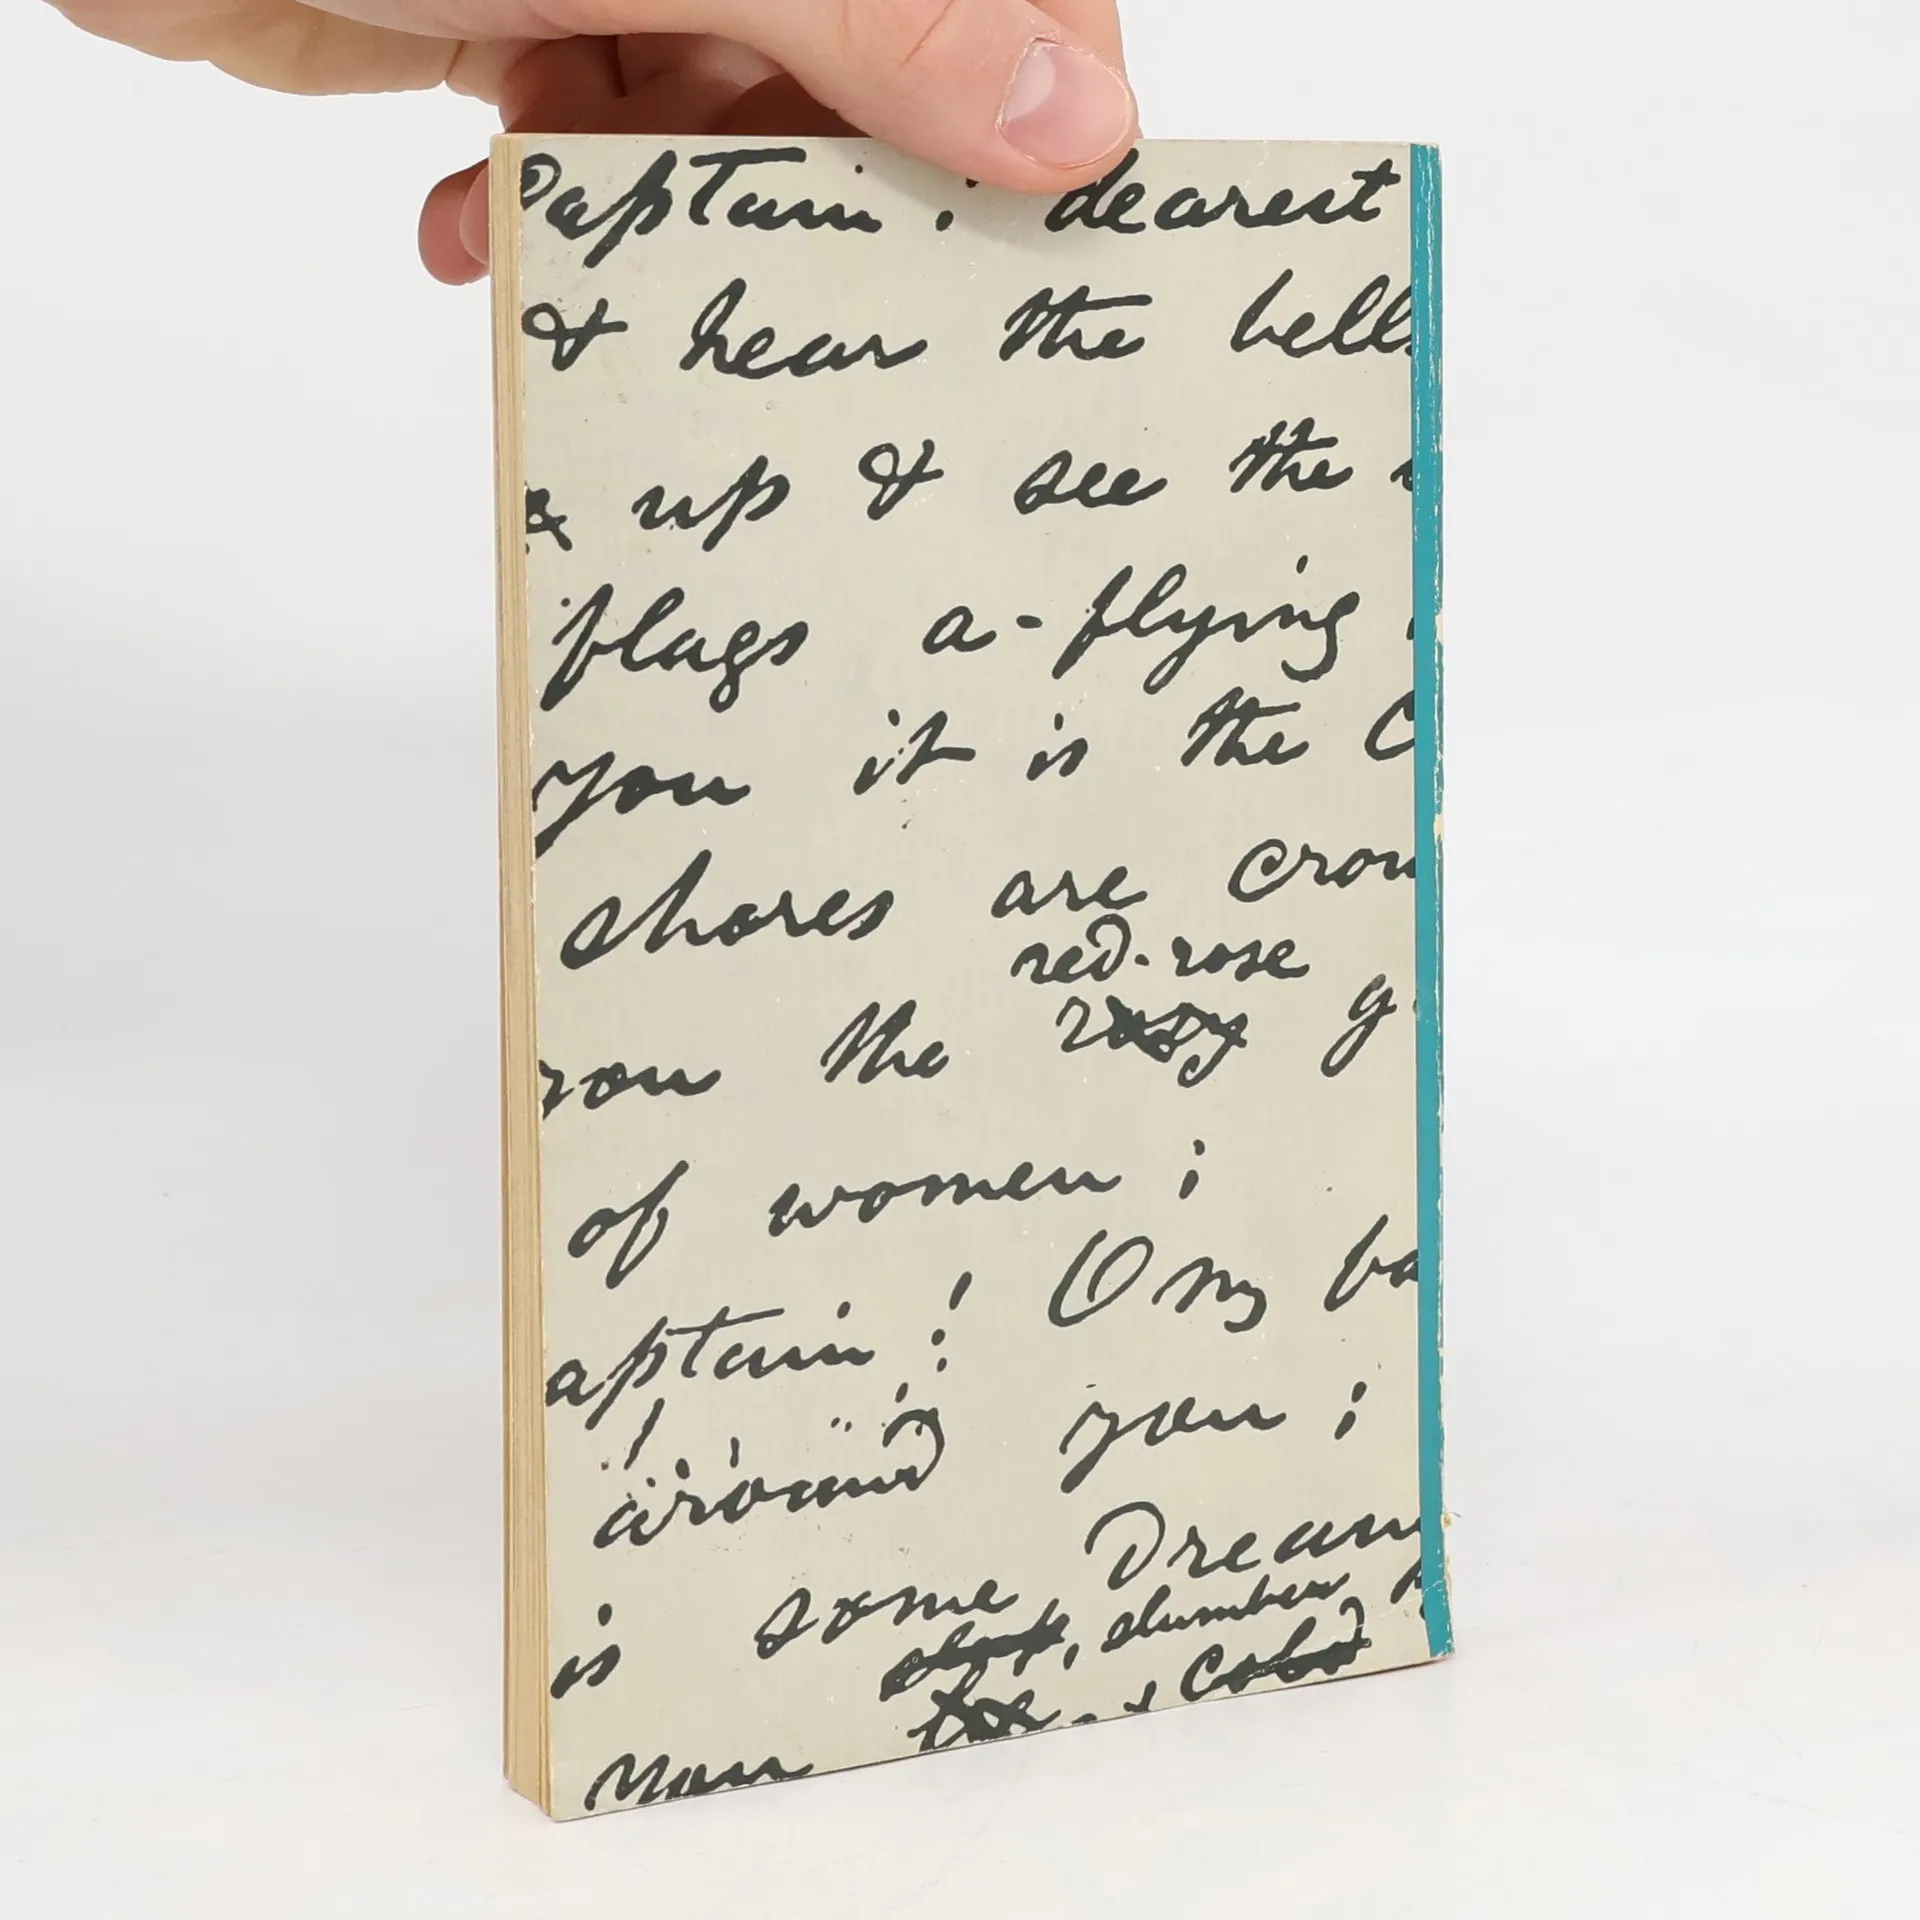 Captain! dearest
& hear the bells
up & see the
flags a-flying
you it is the
shores are crow
red-rose
you the rosy g
of women;
aptain! O my
around you;
is some Dream
slumber
Cold
you